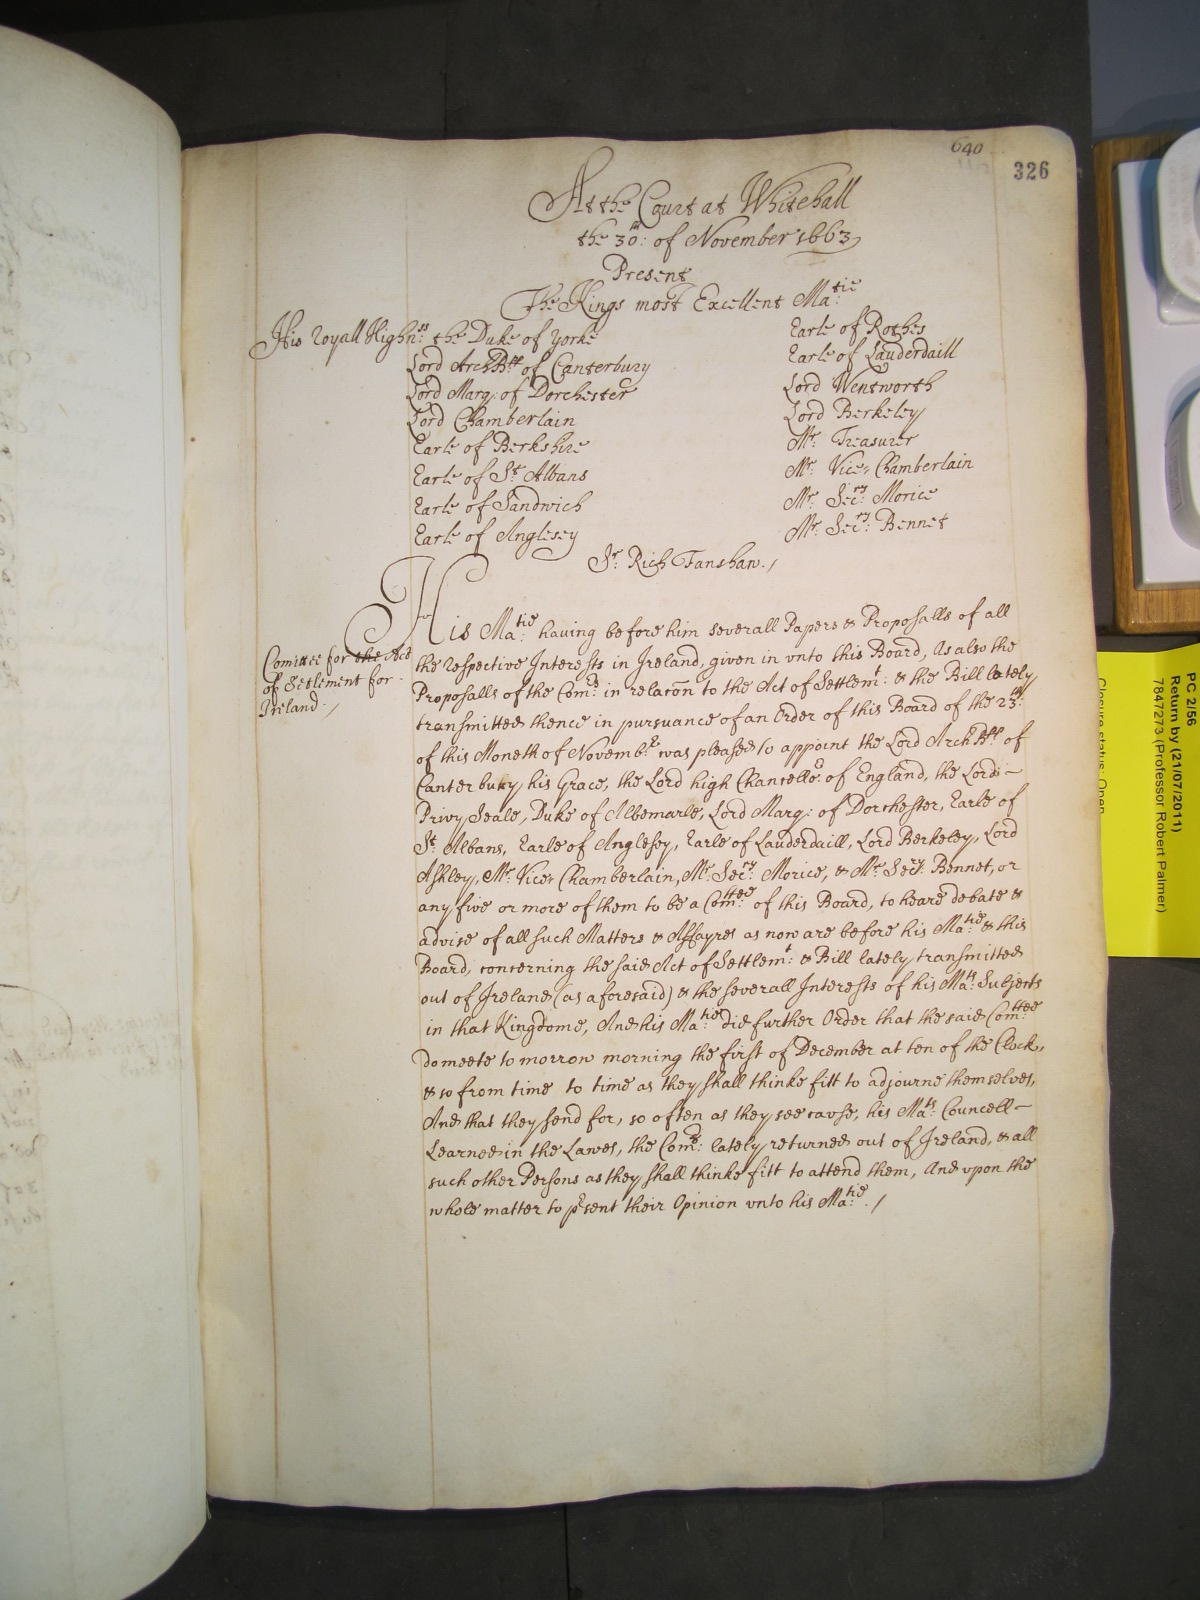 640
326
At the Court at Whitehall
the 30th: of November 1663,
Present
The Kings most Excellent Matie:
His Royall Highnss: the Duke of Yorke
Lord ArchBpp of Canterbury
Lord Marq: of Dorchester
Lord Chamberlain
Earle of Berkshire
Earle of St Albans
Earle of Sandwich
Earle of Anglesey
Earle of Rothes
Earle of Lauderdaill
Lord Wentworth
Lord Berkeley
Mr. Treasurer
Mr. Vice-Chamberlain
Mr. Secry: Morice
Mr. Secry: Bennet
Sr. Rich Fanshaw./
Comittee for the Act
of Setlement for
Ireland./
His Matie: having before him severall Papers & Proposalls of all
the respective Interests in Ireland, given in vnto this Board, As also the
Proposalls of the Comrs: in relacōn to the Act of Settlemt: & the Bill lately
transmitted thence in pursuance of an Order of this Board of the 23th:
of this Moneth of Novembr: was pleased to appoint the Lord ArchBpp of
Canterbury his Grace, the Lord high Chancellor: of England, the Lord -
Privy Seale, Duke of Albemarle, Lord Marq: of Dorchester, Earle of
St. Albans, Earle of Anglesey, Earle of Lauderdaill, Lord Berkeley, Lord
Ashley, Mr. Vice-Chamberlain, Mr. Secry: Morice, & Mr. Secry: Bennet, or
any five or more of them to be a Comttee: of this Board, to heare debate &
advise of all such Matters & Affayres as now are before his Matie: & this
Board, concerning the said Act of Settlemt: & Bill lately transmitted
out of Ireland (as aforesaid) & the severall Interests of his Mats: Subjects
in that Kingdome, And his Matie: did further Order that the said Comttee:
do meete to morrow morning the first of December at ten of the Clock,
& so from time to time as they shall thinke fitt to adjourne themselves,
And that they send for, so often as they see cause, his Mats: Councell -
Learned in the Lawes, the Comrs: lately returned out of Ireland, & all
such other Persons as they shall thinke fitt to attend them, And vpon the
whole matter to prsent their Opinion vnto his Matie:./
PC 2/56
Return by (21/07/2011)
7847273 (Professor Robert Palmer)
Closure status: Open